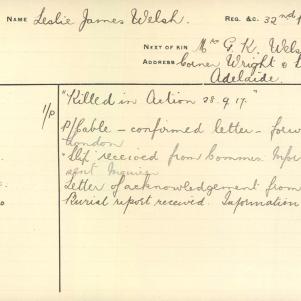 NAME Leslie James Welsh. REG. &C. 32nd
NEXT OF KIN Mrs G. K. Wels
ADDRESS Corner Wright &
Adelaide.
1/P "Killed in Action 28.9.17."
P/Cable – confirmed letter – forw
London
"Slip received from Commrs. Infor
sent Inquirer
Letter of acknowledgement from
Burial report received. Information